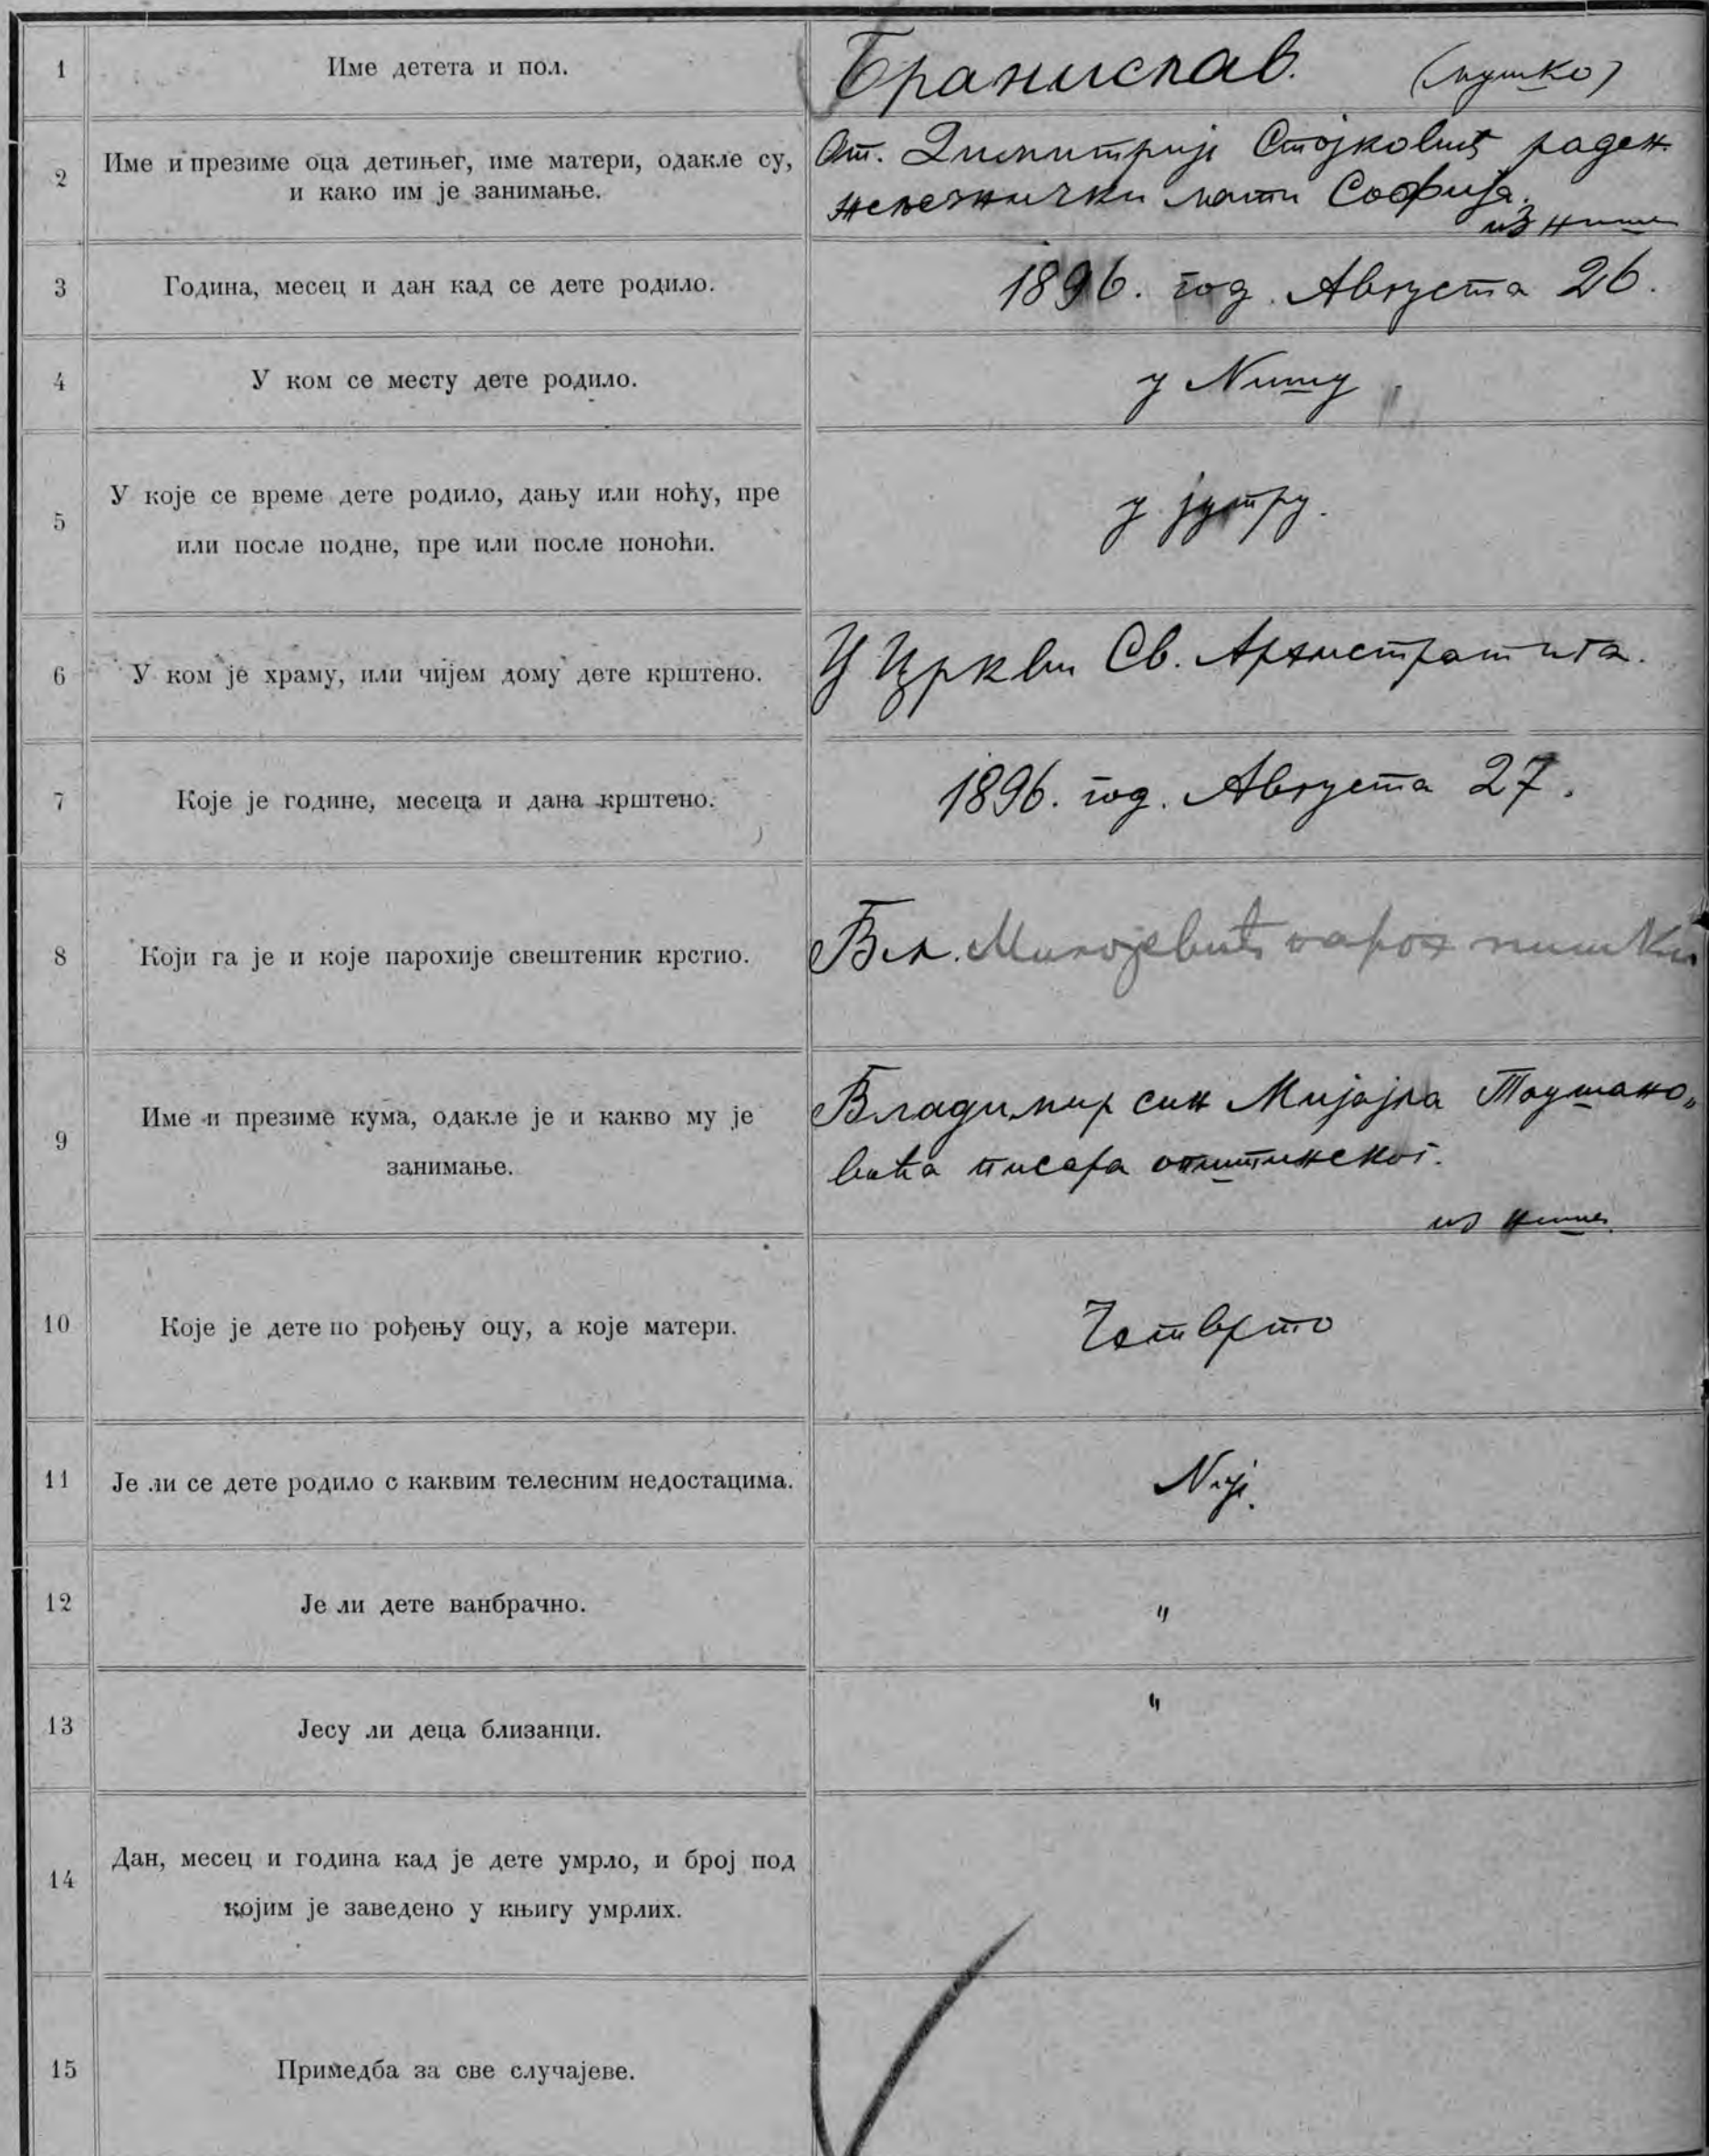 1
Име детета и пол.
Бранислав. (мушко)
2
Име и презиме оца детињег, име матери, одакле су,
и како им је занимање.
От. Димитрије Стојковић раден.
жељезнички мати Софија.
из Ниша
3
Година, месец и дан кад се дете родило.
1896. год. Августа 26.
4
У ком се месту дете родило.
у Nишу
5
У које се време дете родило, дању или ноћу, пре
или после подне, пре или после поноћи.
у јутру.
6
У ком је храму, или чијем дому дете крштено.
У Цркви Св. Архистратига.
7
Које је године, месеца и дана крштено.
1896. год. Августа 27.
8
Који га је и које парохије свештеник крстио.
Вл. Милојевић парох нишки
9
Име и презиме кума, одакле је и какво му је
занимање.
Владимир син Мијајла Таушано„
вића писара општинског.
из Ниша
10
Које је дете по рођењу оцу, а које матери.
Четврто
11
Је ли се дете родило с каквим телесним недостацима.
Nије.
12
Је ли дете ванбрачно.
"
13
Јесу ли деца близанци.
"
14
Дан, месец и година кад је дете умрло, и број под
којим је заведено у књигу умрлих.
15
Примедба за све случајеве.